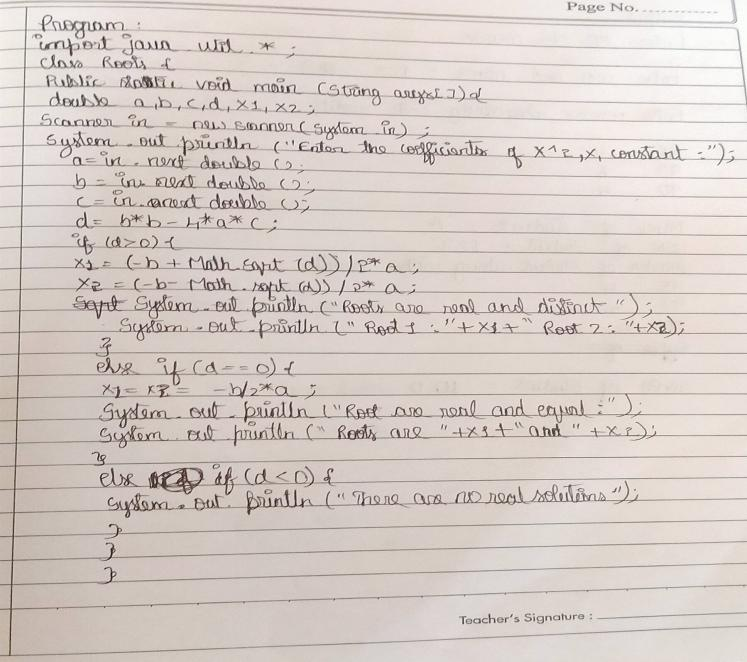 Page No. ................
Program:
import java util *;
class Roots {
Public static void main (String args[]) {
double a,b,c,d,x1,x2;
Scanner in = new scanner(System in);
System.out println ("Enter the coefficients of x^2,x, constant :");
a=in.next double ();
b = in.next double ();
c = in.next double ();
d= b*b-4*a*c;
if (d>0) {
x1 = (-b + Math.sqrt (d))/2*a;
x2 = (-b- Math.sqrt (d))/2* a;
System.out println ("Roots are real and distinct");
System.out.println (" Root 1 : "+x1+" Root 2: "+x2);
}
else if (d==0) {
x1= x2= -b/2*a ;
System.out.println ("Root are real and equal:");
System out println (" Roots are "+x1+" and " +x2);
}
else if (d<0) {
System.out.println ("There are no real solutions");
}
}
}
Teacher's Signature :